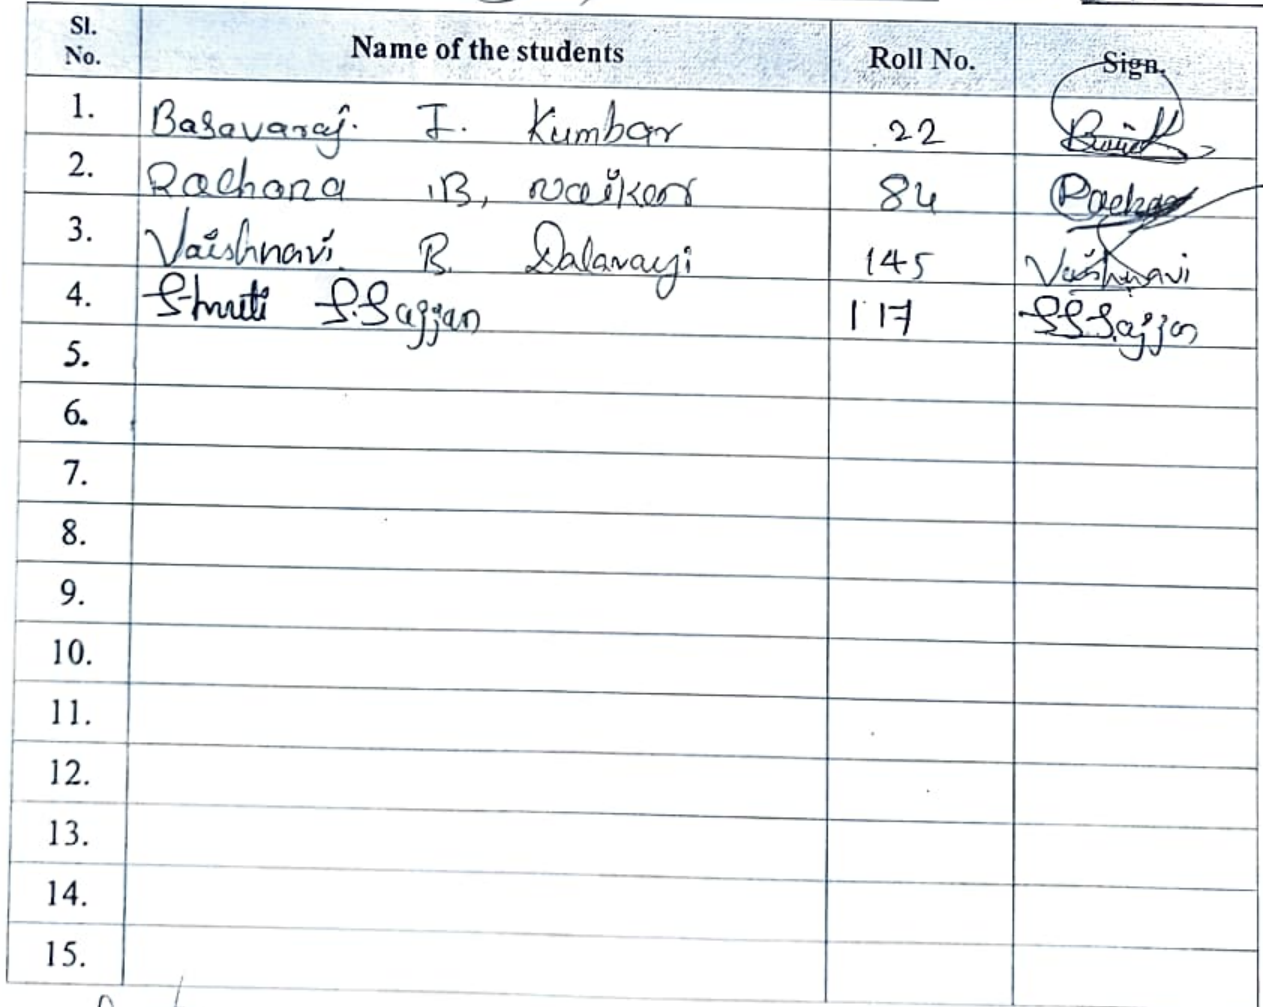 Sl. No. Name of the students Roll No. Sign.
1. Basavaraj. I. Kumbar 22
2. Rachana B, Naiker 84 Rachana
3. Vaishnavi B. Dalavayi 145 Vaishnavi
4. Shruti S. Sajjan 117 SSSajjan
5.
6.
7.
8.
9.
10.
11.
12.
13.
14.
15.